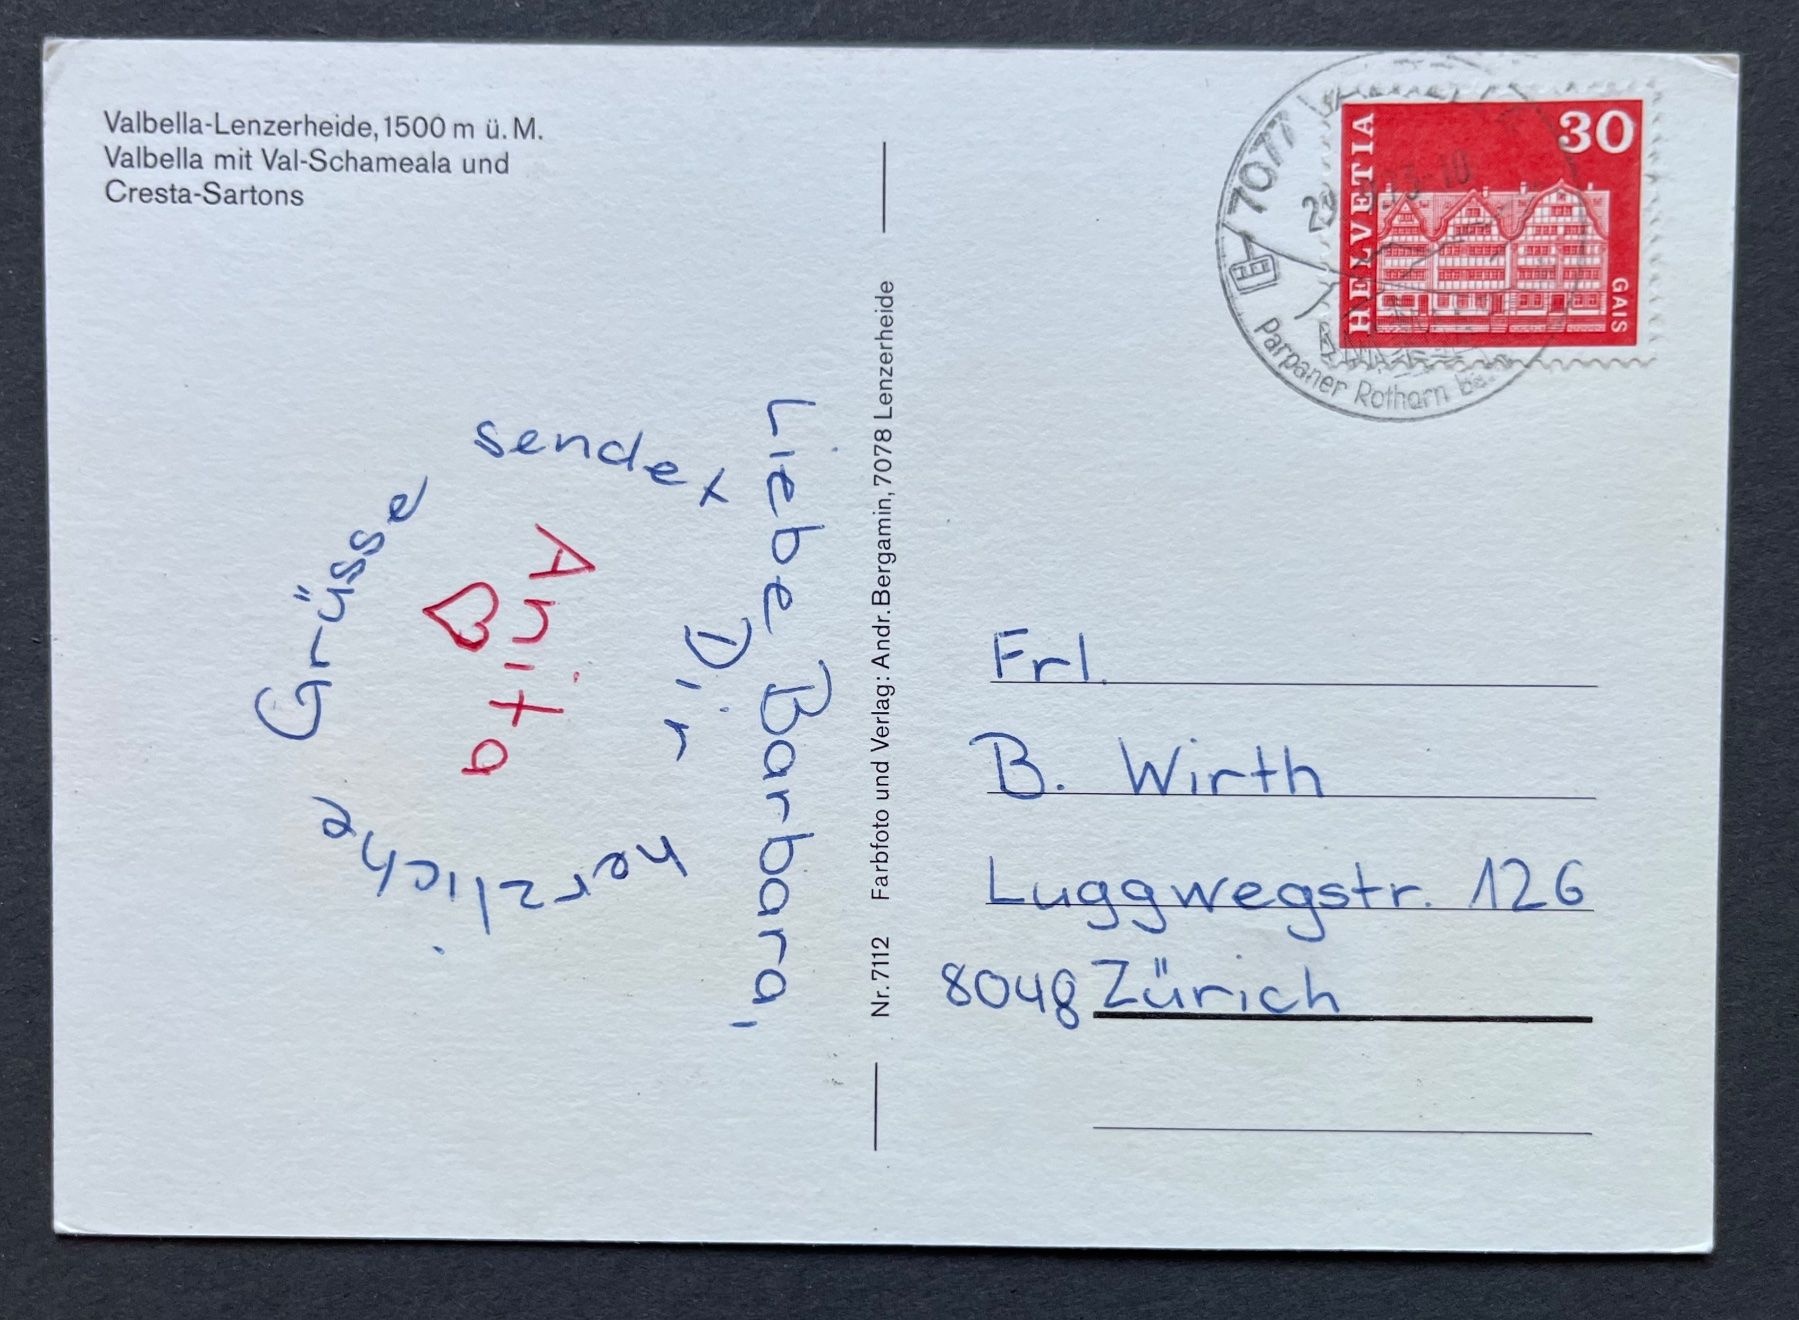 Valbella-Lenzerheide, 1500 m ü. M.
Valbella mit Val-Schameala und
Cresta-Sartons
Liebe Barbara,
Dir
herzliche
Grüsse
sendet
Anita
Nr. 7112 Farbfoto und Verlag: Andr. Bergamin, 7078 Lenzerheide
HELVETIA
30
GAIS
7077
Parpaner Rothorn
Frl.
B. Wirth
Luggwegstr. 126
8048 Zürich